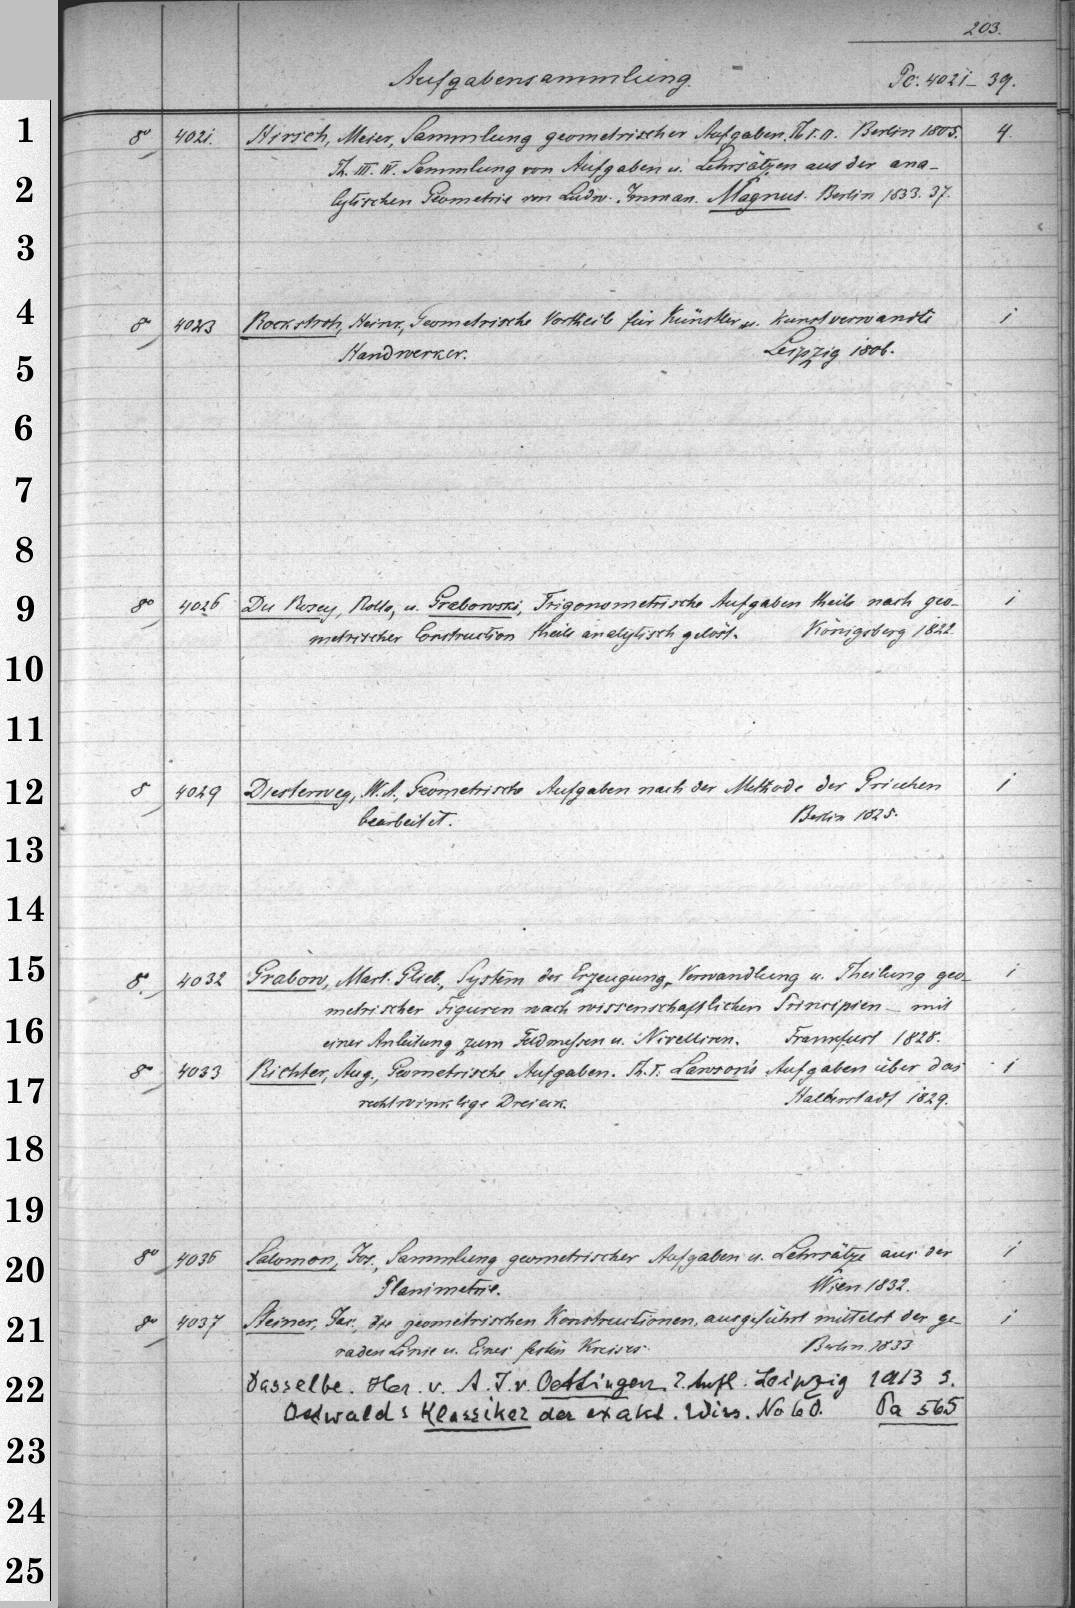 203.
Aufgabensammlung. Pc. 4021–39.
1 8° 4021. Hirsch, Meier, Sammlung geometrischer Aufgaben. Th. I. II. Berlin 1805. 4.
Th. III. IV. Sammlung von Aufgaben u. Lehrsätzen aus der ana-
2 lytischen Geometrie von Ludw. Imman. Magnus. Berlin 1833. 37.
3
4 8° 4023 Rockstroh, Heinr., Geometrische Vortheile für Künstler u. kunstverwandte 1
5 Handwerker. Leipzig 1806.
6
7
8
9 8° 4026 Du Rosey, Rollo, u. Grabowski, Trigonometrische Aufgaben theils nach geo- 1
metrischer Construction theils analytisch gelöst. Königsberg 1822.
10
11
12 8 4029 Diesterweg, W. A., Geometrische Aufgaben nach der Methode der Griechen 1
bearbeitet. Berlin 1825.
13
14
15 8°. 4032 Grabow, Mart. Glieb., System der Erzeugung, Verwandlung u. Theilung geo- 1
metrischer Figuren nach wissenschaftlichen Principien – mit
16 einer Anleitung zum Feldmessen u. Nivelliren. Frankfurt 1828.
8° 4033 Richter, Aug., Geometrische Aufgaben. Th. I. Lawson's Aufgaben über das 1
17 rechtwinklige Dreieck. Halberstadt 1829.
18
19
20 8° 4036 Salomon, Jos., Sammlung geometrischer Aufgaben u. Lehrsätze aus der 1
Planimetrie. Wien 1832.
21 8° 4037 Steiner, Jac., die geometrischen Konstructionen, ausgeführt mittelst der ge- 1
raden Linie u. Eines festen Kreises. Berlin 1833
22 Dasselbe. Her. v. A. J. v. Oettingen. 2. Aufl. Leipzig 1913 s.
Ostwalds Klassiker der exakt. Wiss. No 60. Pa 565
23
24
25